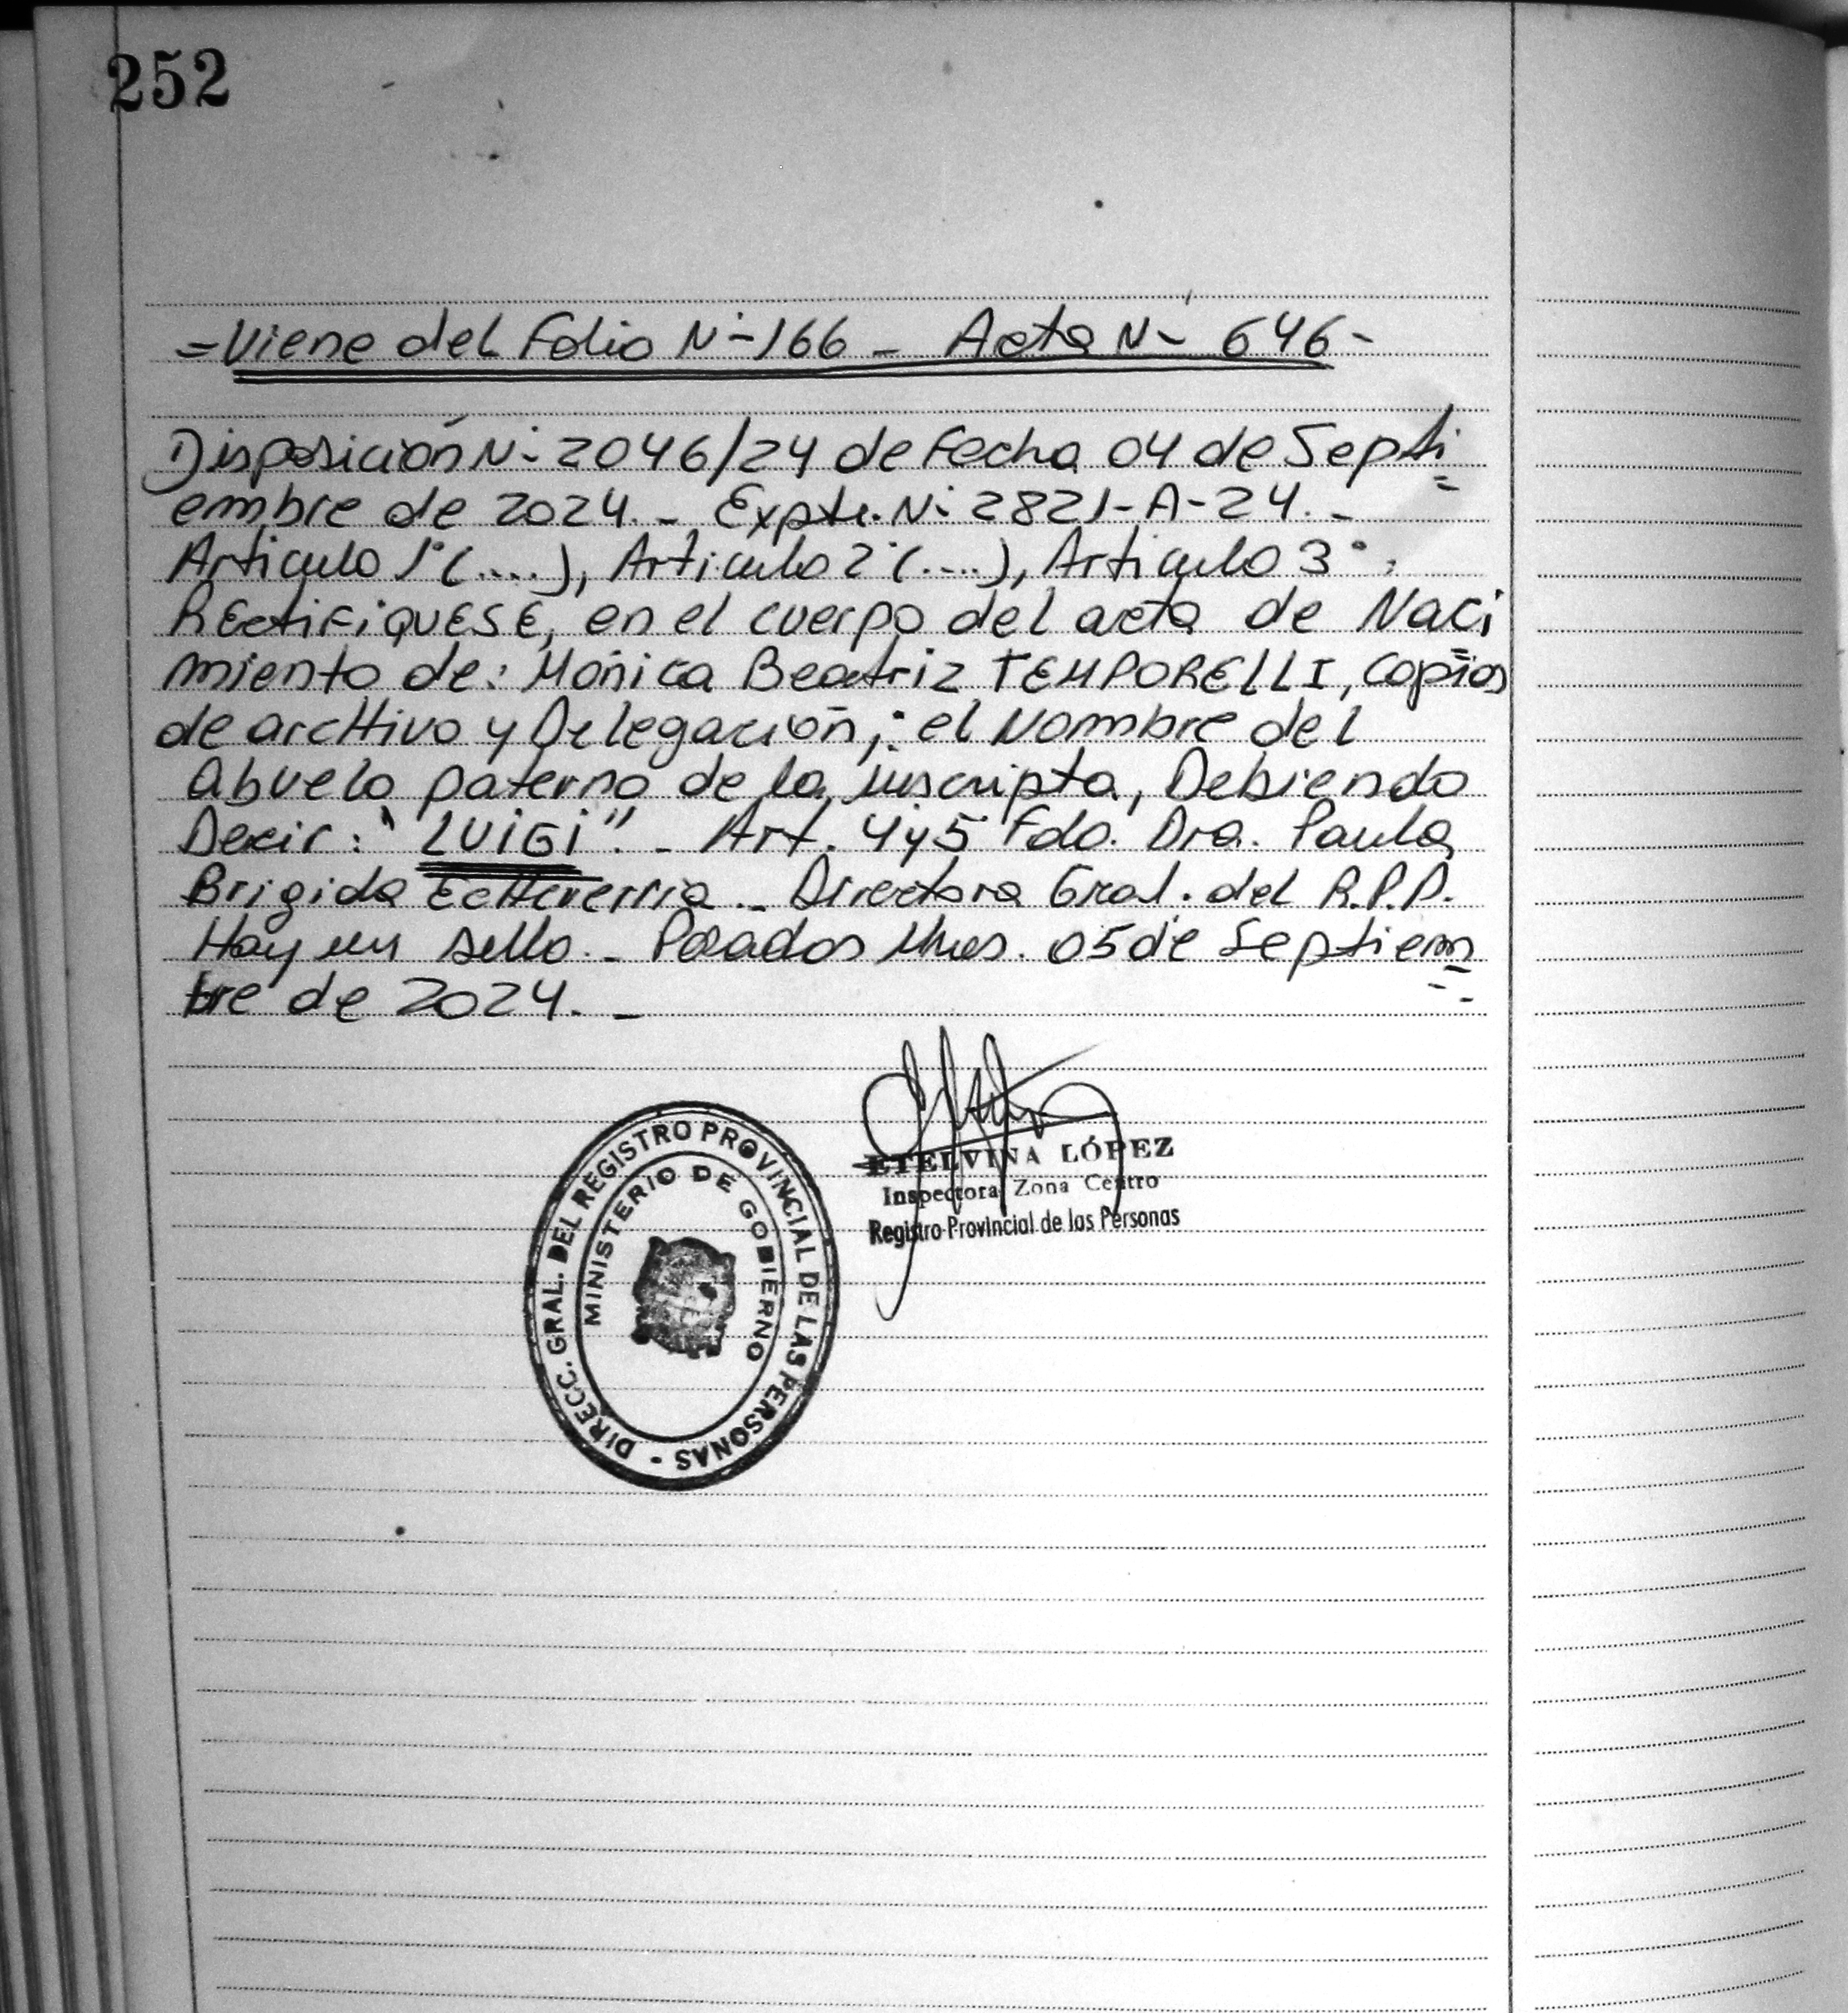 252
=Viene del Folio N·-166 - Acta N- 646-
Disposición N·- 2046/24 de Fecha 04 de Septi=
embre de 2024.- Expte. N·- 2821-A-24.-
Articulo 1°(....), Articulo 2°(....), Articulo 3°:
REctiFiQUESE, en el cuerpo del acta de Naci=
miento de: Mónica Beatriz TEMPORELLI, copias
de arcHivo y Delegación,: el Nombre del
Abuelo paterno de la inscripta, Debiendo
Decir: "LUIGI".- Art. 4 y 5 Fdo. Dra. Paula
Brigida EcHeverria - Directora Gral. del R.P.P.
Hay un sello.- Posadas Mnes. 05 de Septiem=
bre de 2024.-
ETELVINA LÓPEZ
Inspectora Zona Centro
Registro Provincial de las Personas
DIRECC. GRAL. DEL REGISTRO PROVINCIAL DE LAS PERSONAS -
MINISTERIO DE GOBIERNO